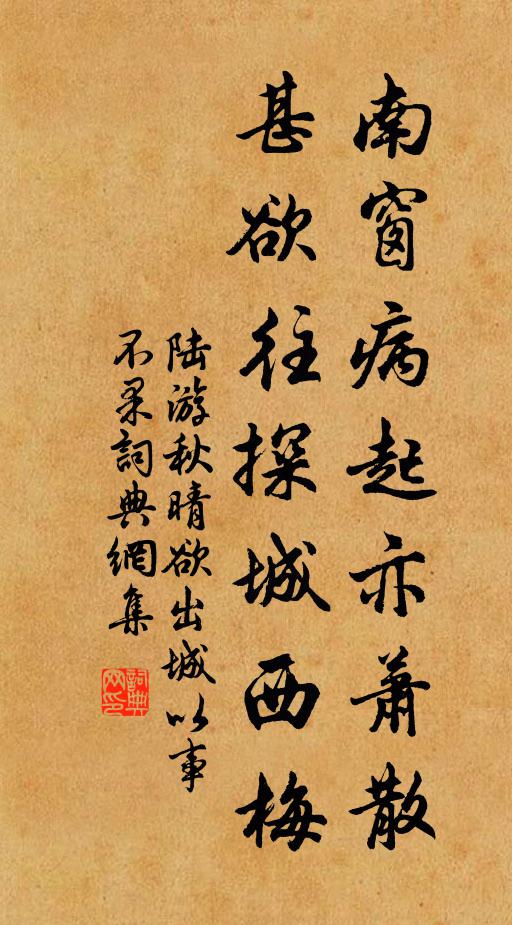 南窗病起亦蕭散
甚欲往探城西梅
陆游秋晴欲出城以事
不果詞典網集
詞典
网印